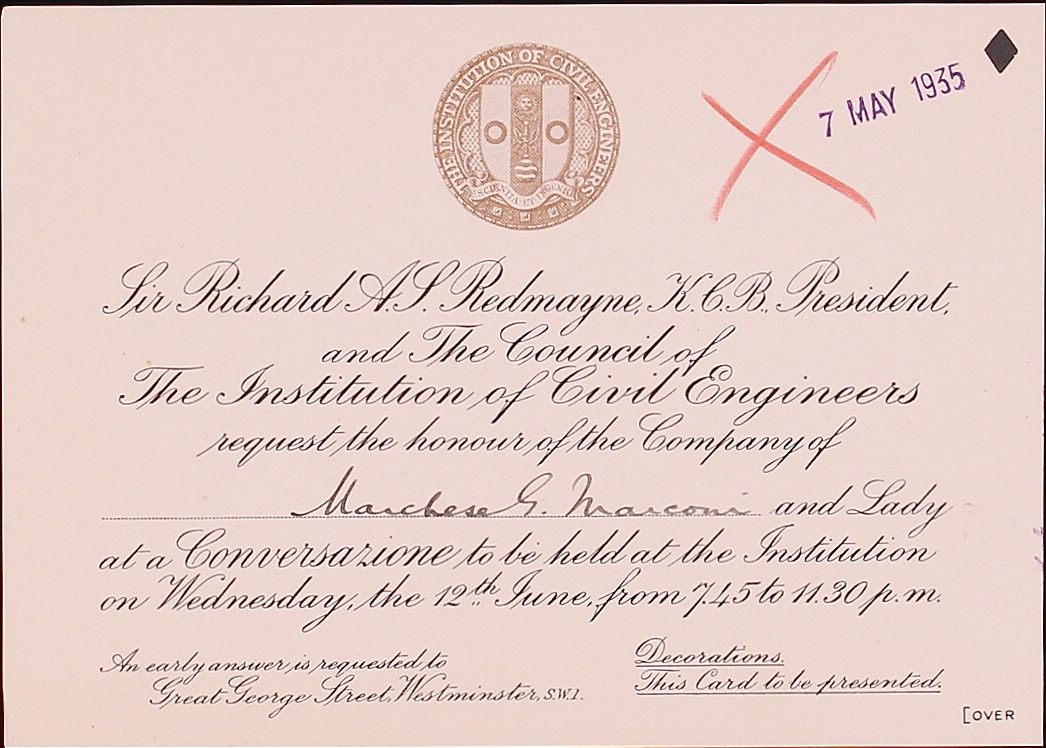 THE INSTITUTION OF CIVIL ENGINEERS
SCIENTIA·ET·INGENIO
7 MAY 1935
Sir Richard A.S. Redmayne, K.C.B., President,
and The Council of
The Institution of Civil Engineers
request the honour of the Company of
Marchese G. Marconi and Lady
at a Conversazione to be held at the Institution
on Wednesday, the 12th June, from 7.45 to 11.30 p.m.
An early answer is requested to
Great George Street, Westminster, S.W.1.
Decorations.
This Card to be presented.
[OVER